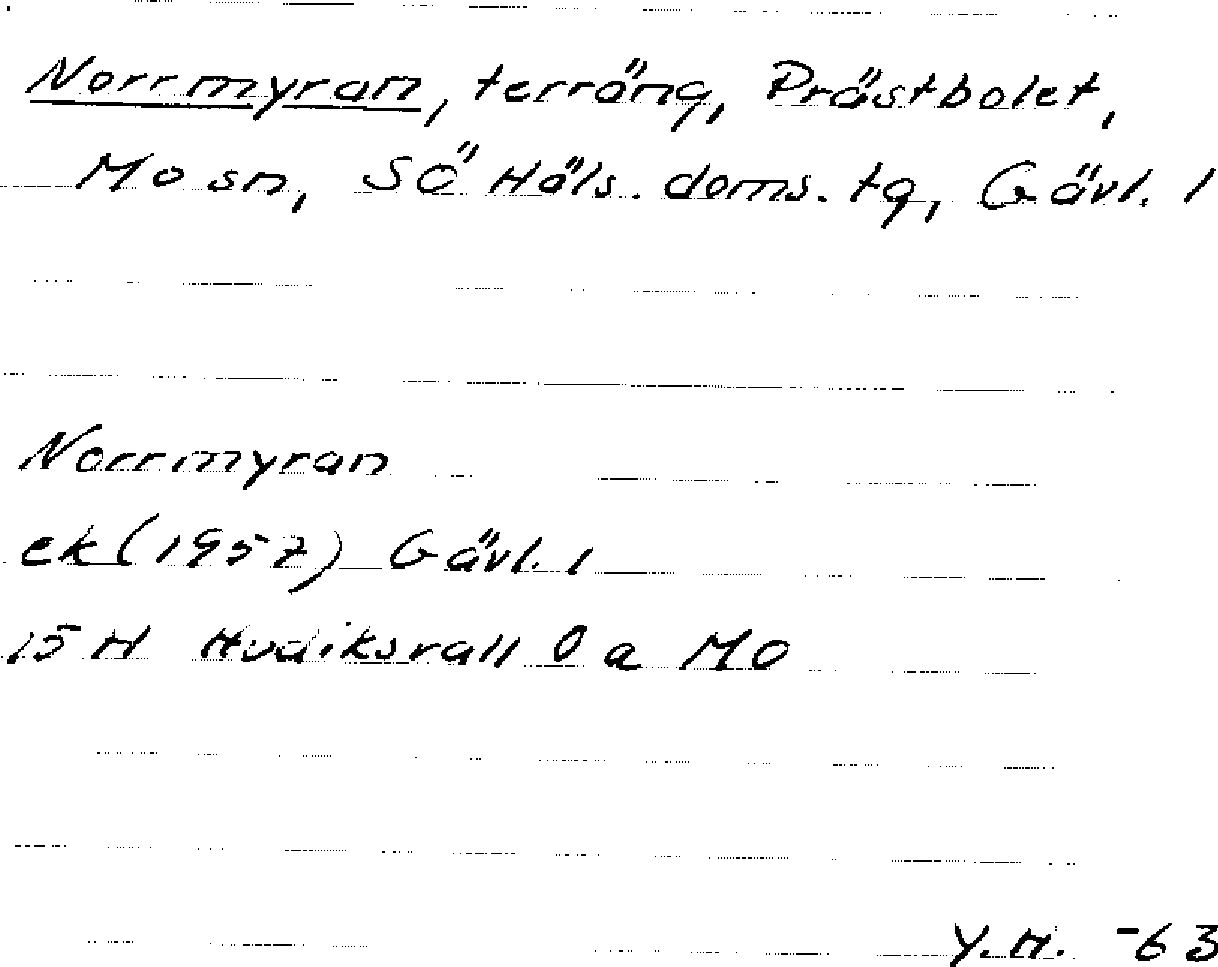 Norrmyran, terräng, Prästbolet,
Mo sn, SÖ Häls. doms. tg, Gävl. l
Norrmyran
ek (1957) Gävl. l
15 H Hudiksvall 0 a MO
Y.H. -63